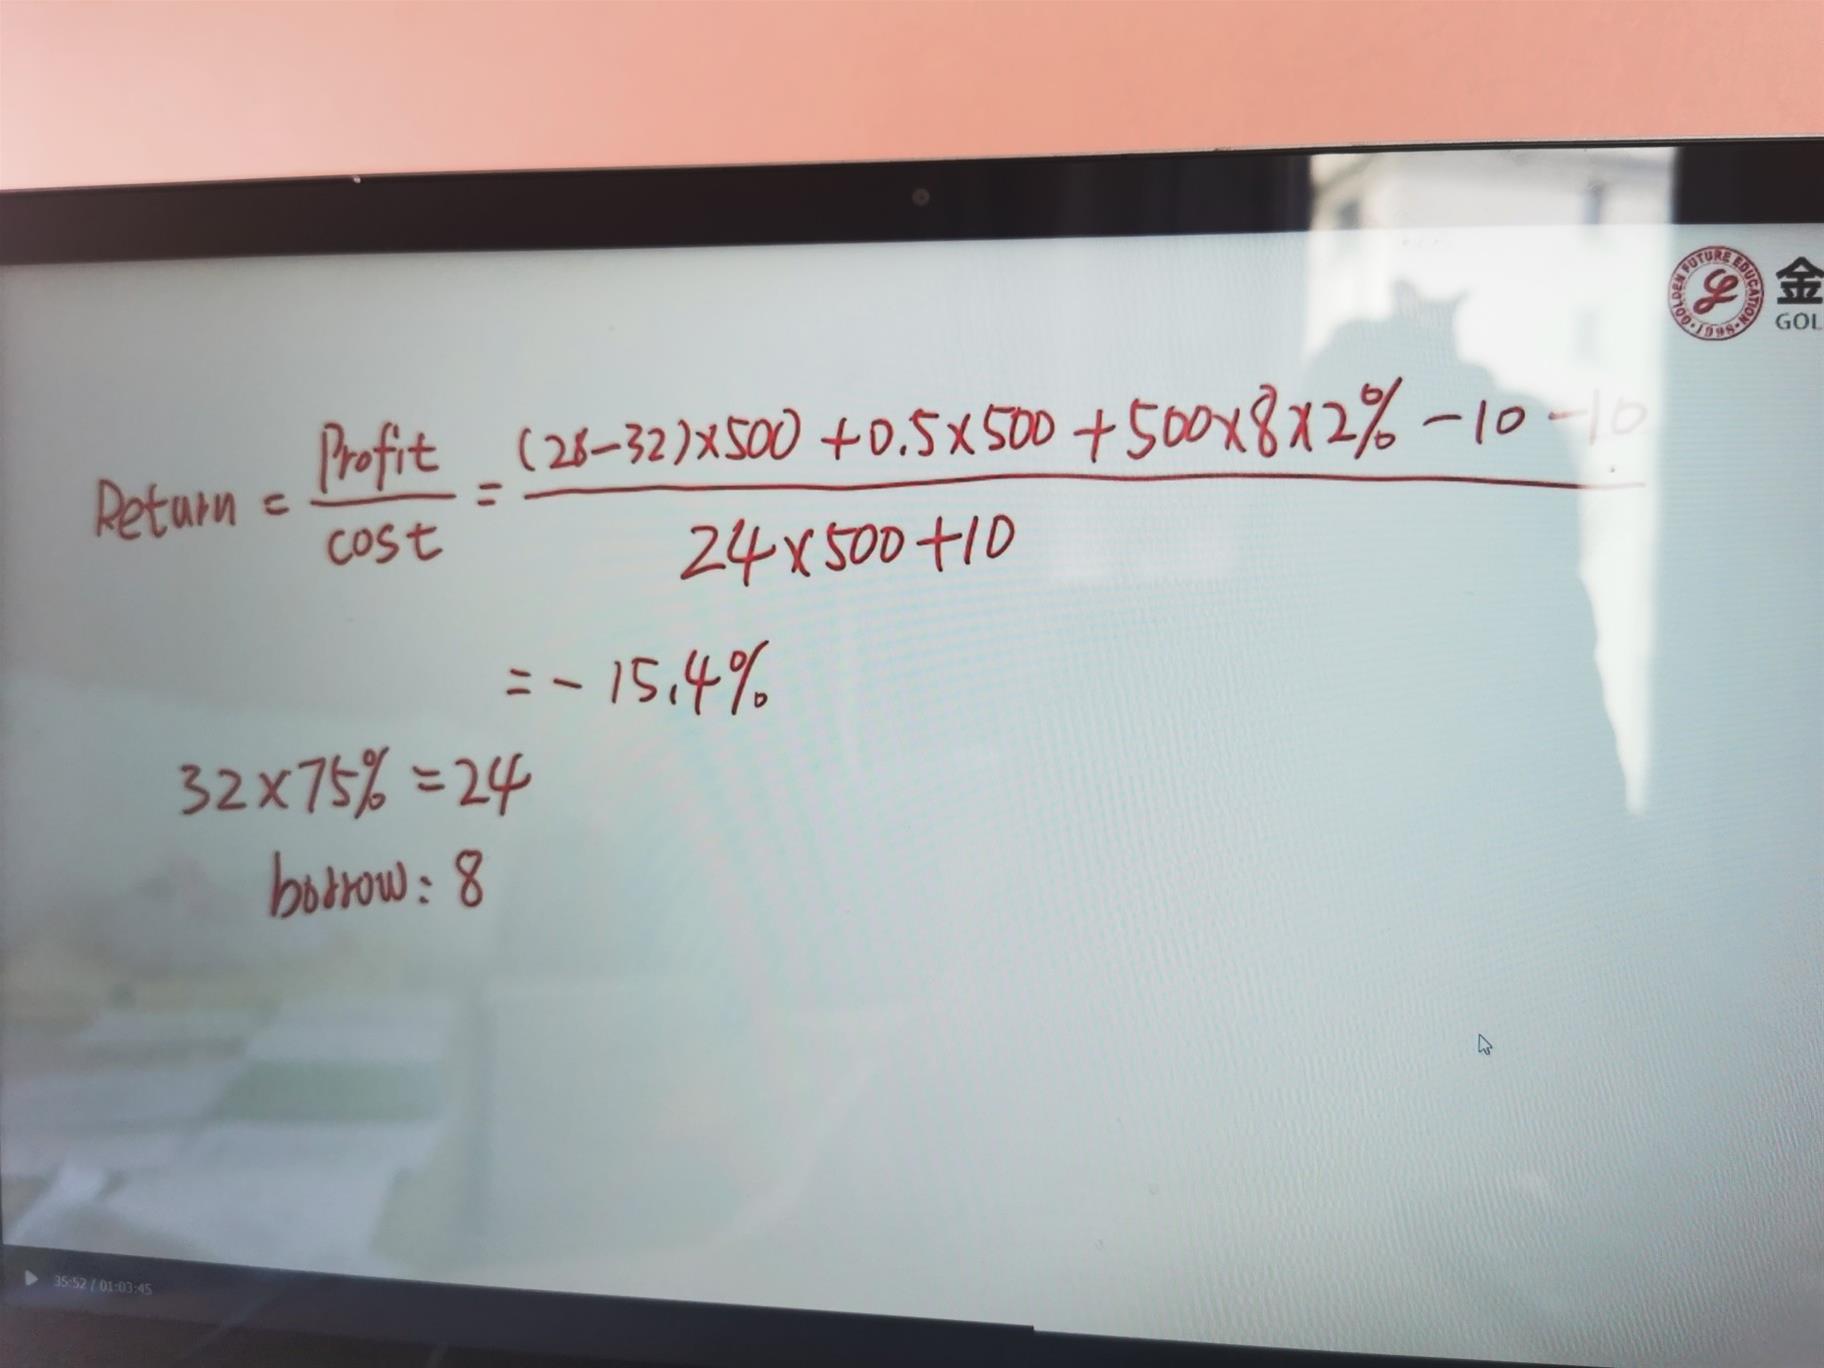 GOLDEN FUTURE EDUCATION
·1998·
金
GOL
Return = Profit/cost = (28-32)×500 + 0.5×500 + 500×8×2% - 10 - 10 / 24×500+10
= - 15.4%
32×75% = 24
borrow: 8
35:52 / 01:03:45